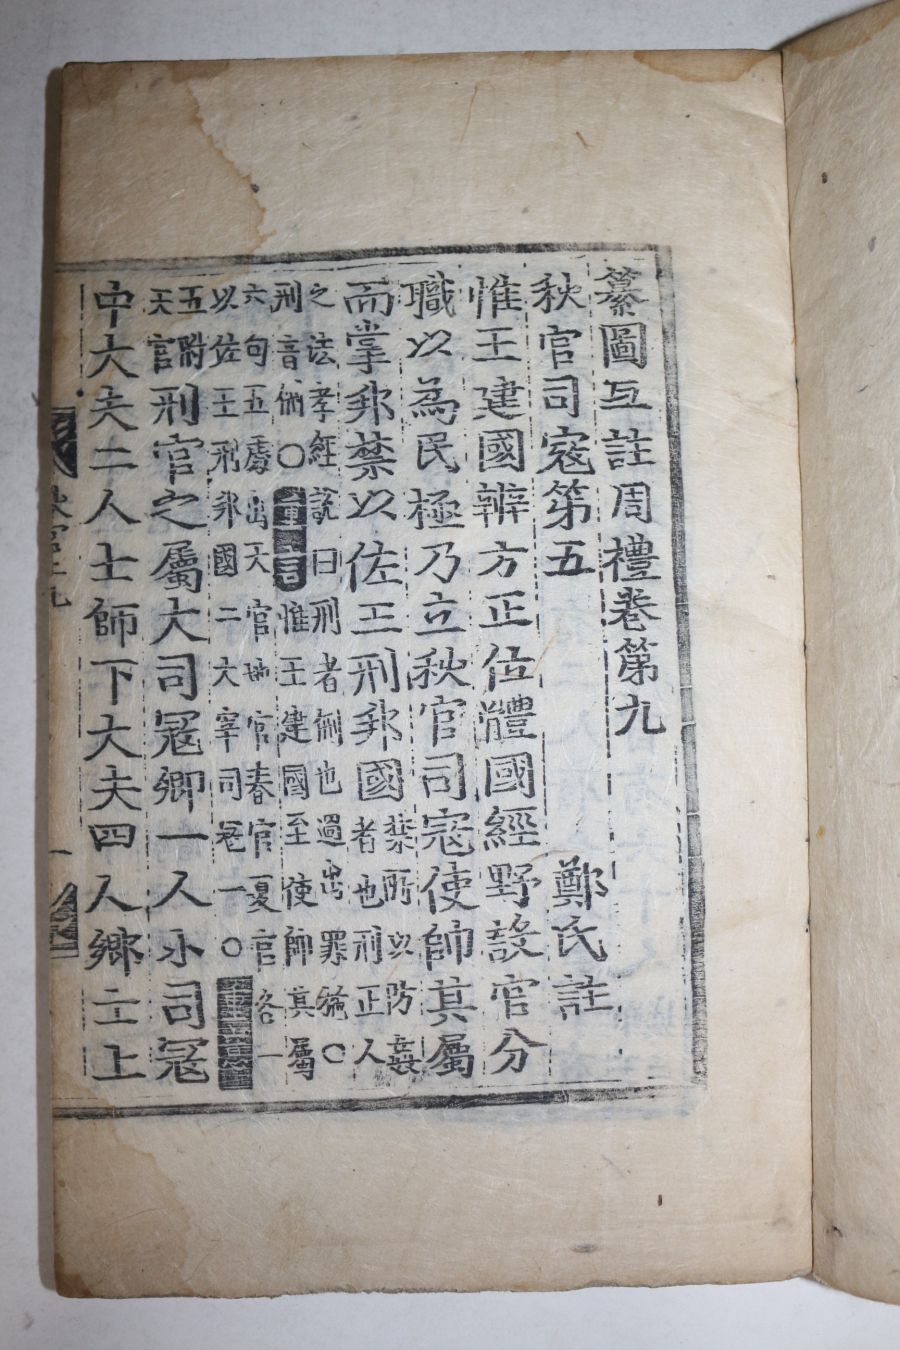 纂圖互註周禮卷第九
秋官司寇第五
鄭氏註
惟王建國辨方正位體國經野設官分
職以為民極乃立秋官司寇使帥其屬
而掌邦禁以佐王刑邦國
禁所以防姦
者也刑正人
之法孝經說曰刑者侀也過出罪施〇
刑音侀〇重言惟王建國至使帥其屬
六句五處出天官地官春官夏官各一
以佐王刑邦國二大宰司寇一〇
五附
天官
刑官之屬大司寇卿一人小司寇
中大夫二人士師下大夫四人鄉士上